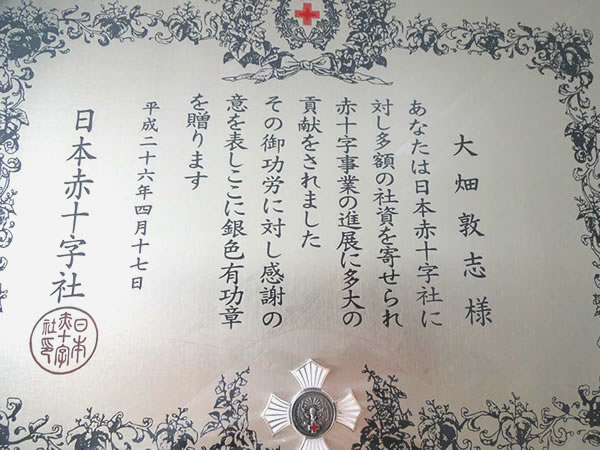 大畑敦志様
あなたは日本赤十字社に
対し多額の社資を寄せられ
赤十字事業の進展に多大の
貢献をされました
その御功労に対し感謝の
意を表しここに銀色有功章
を贈ります
平成二十六年四月十七日
日本赤十字社
日本
赤十字
社印